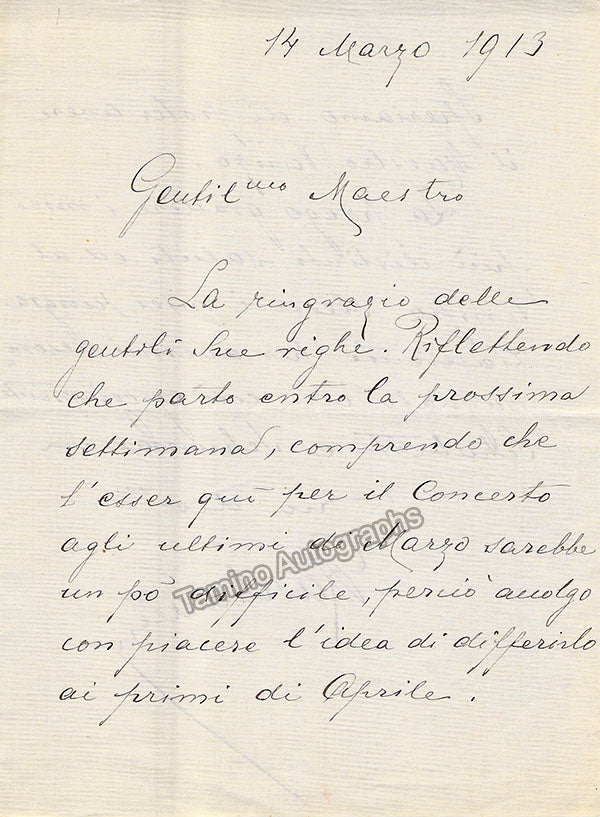 14 Marzo 1913
Gentil mo Maestro
La ringrazio delle
gentili Sue righe. Riflettendo
che parto entro la prossima
settimana, comprendo che
l'esser quì per il Concerto
agli ultimi di Marzo sarebbe
un pò difficile, perciò accolgo
con piacere l'idea di differirlo
ai primi di Aprile.
Tamino Autographs